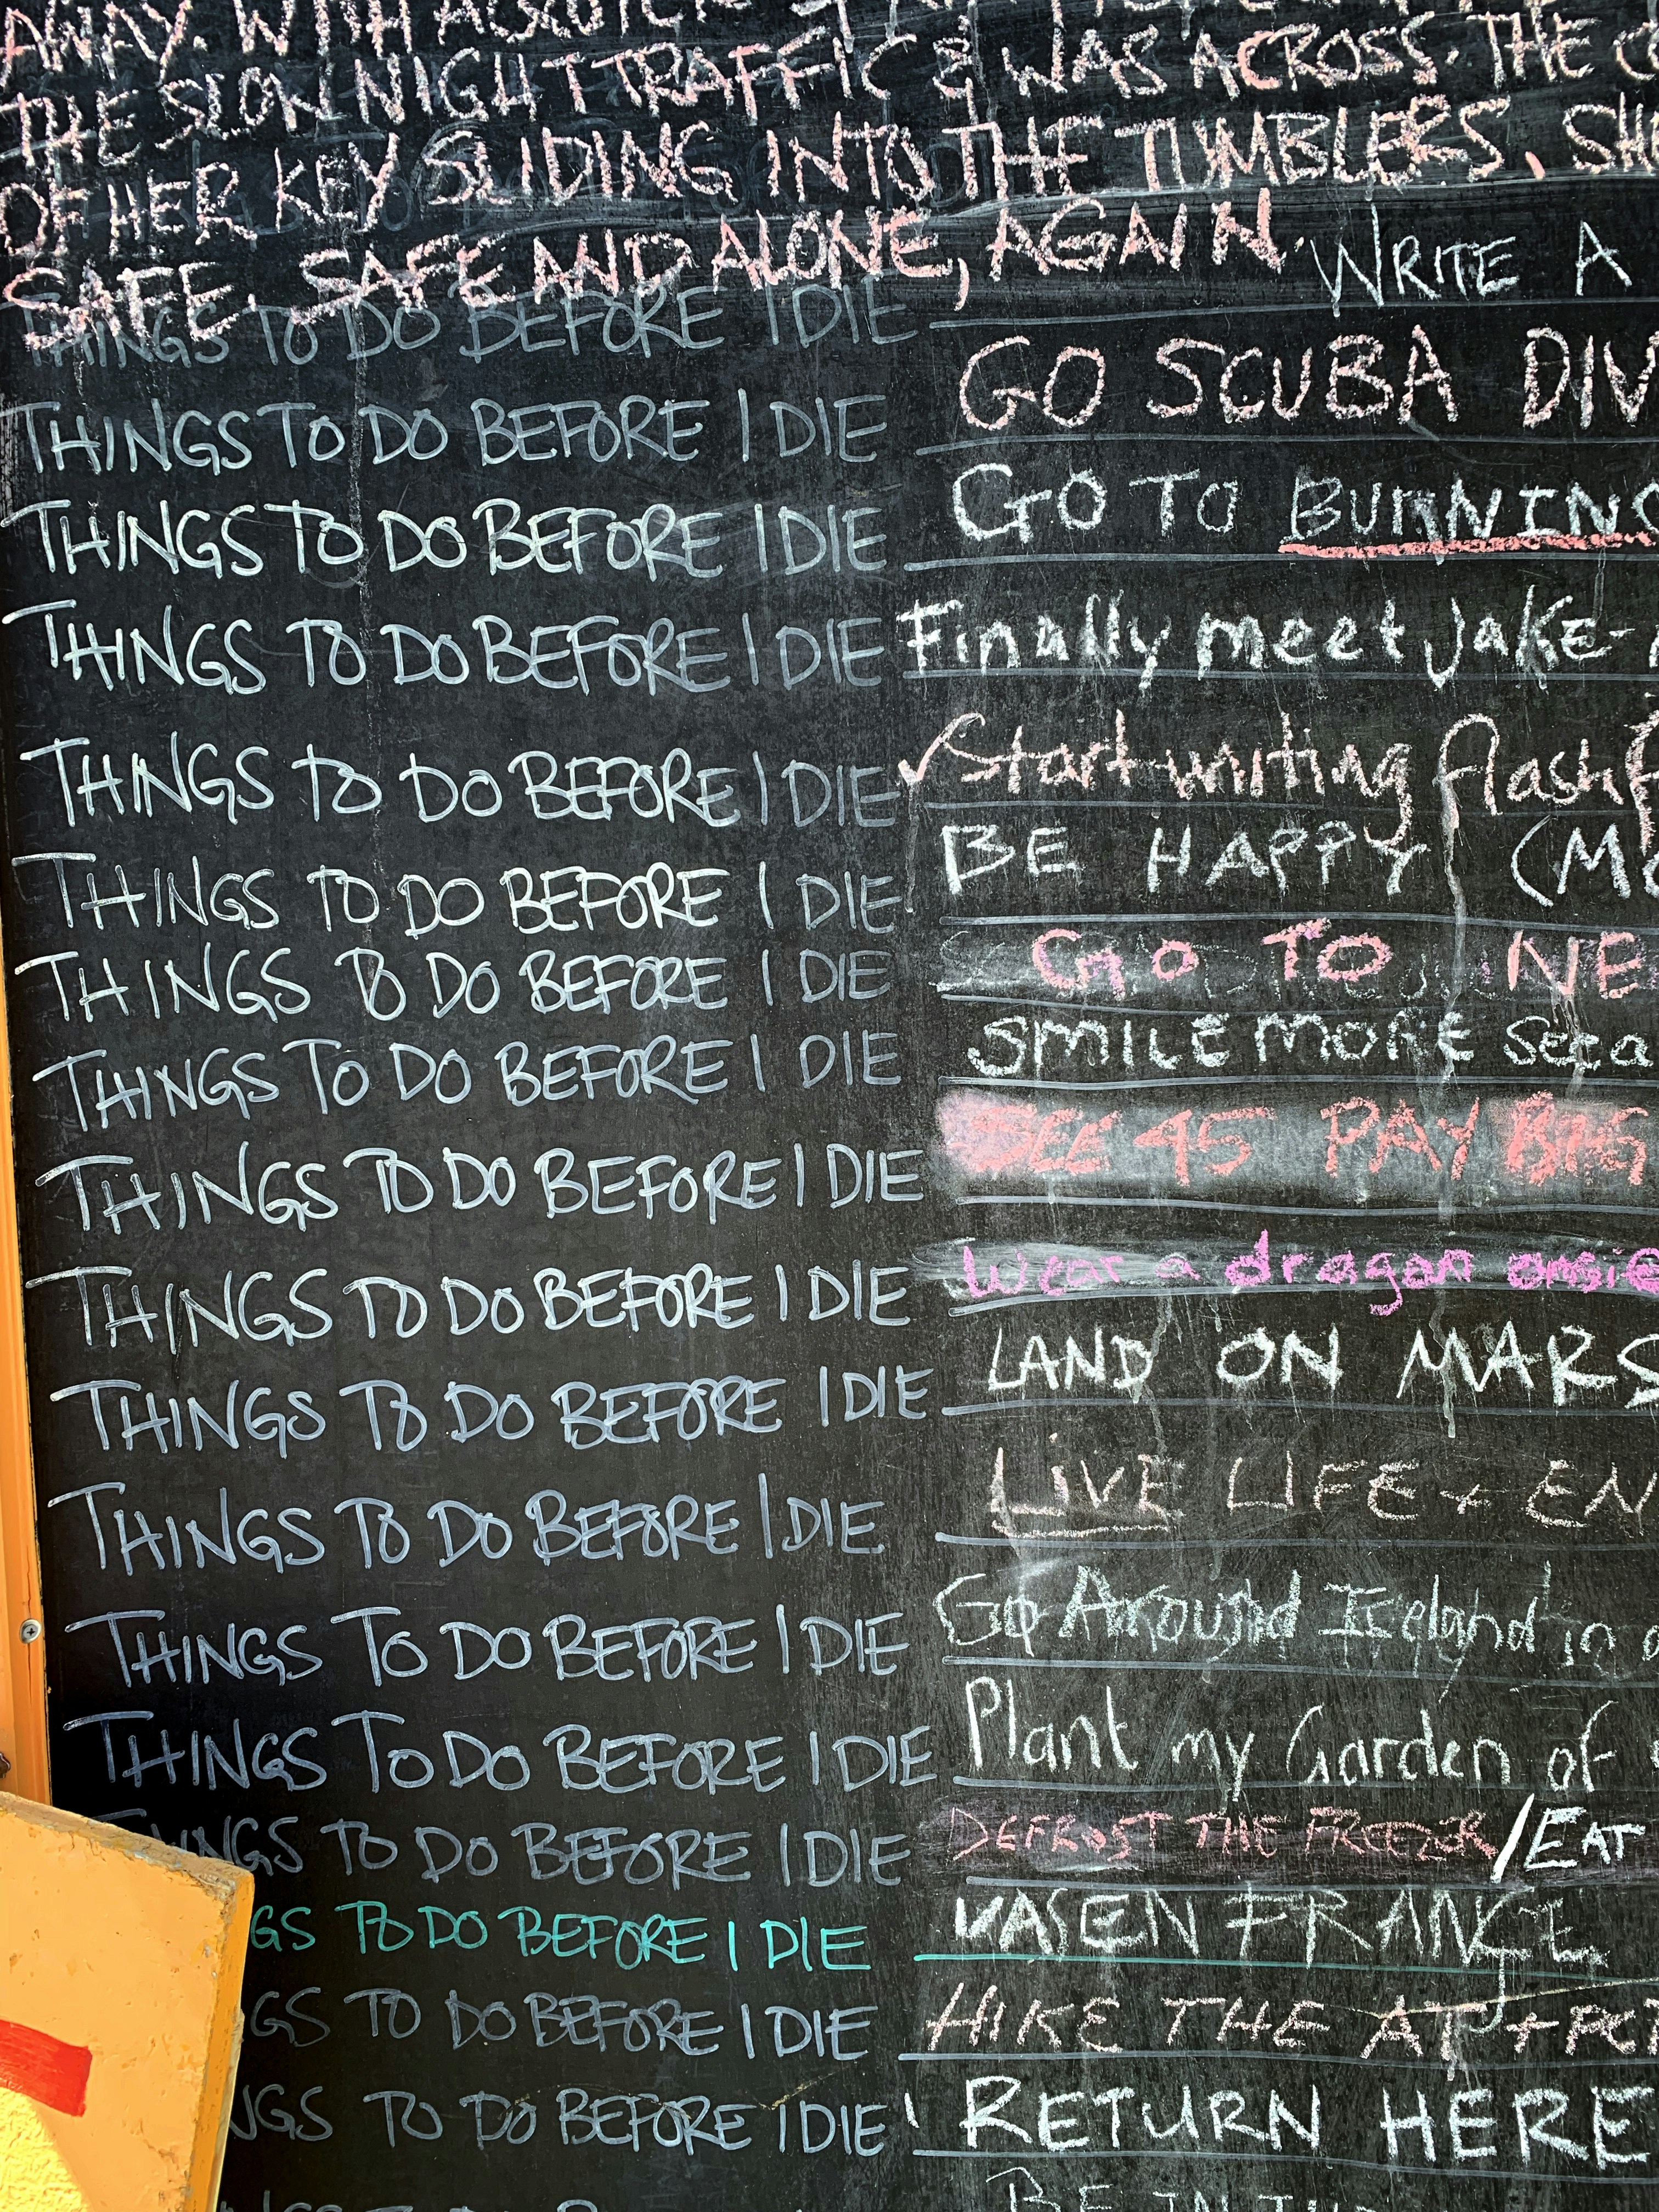 AWAY. WITH A
THE SLOW NIGHT TRAFFIC & WAS ACROSS. THE
OF HER KEY SLIDING INTO THE TUMBLERS. SH
SAFE. SAFE AND ALONE, AGAIN.
THINGS TO DO BEFORE I DIE WRITE A
THINGS TO DO BEFORE I DIE GO SCUBA DIV
THINGS TO DO BEFORE I DIE GO TO BURNING
THINGS TO DO BEFORE I DIE Finally meet Jake-
THINGS TO DO BEFORE I DIE ✓ Start writing flash f
THINGS TO DO BEFORE I DIE BE HAPPY (MO
THINGS TO DO BEFORE I DIE GO TO NE
THINGS TO DO BEFORE I DIE SMILE MORE
THINGS TO DO BEFORE I DIE SEE 45 PAY BIG
THINGS TO DO BEFORE I DIE Wear a dragon onsie
THINGS TO DO BEFORE I DIE LAND ON MARS
THINGS TO DO BEFORE I DIE LIVE LIFE + EN
THINGS TO DO BEFORE I DIE Go Around Iceland in a
THINGS TO DO BEFORE I DIE Plant my Garden of
NGS TO DO BEFORE I DIE DEFROST THE FREEZER /EAT
GS TO DO BEFORE I DIE FRANCE
GS TO DO BEFORE I DIE HIKE THE AT +
NGS TO DO BEFORE I DIE RETURN HERE
BE IN